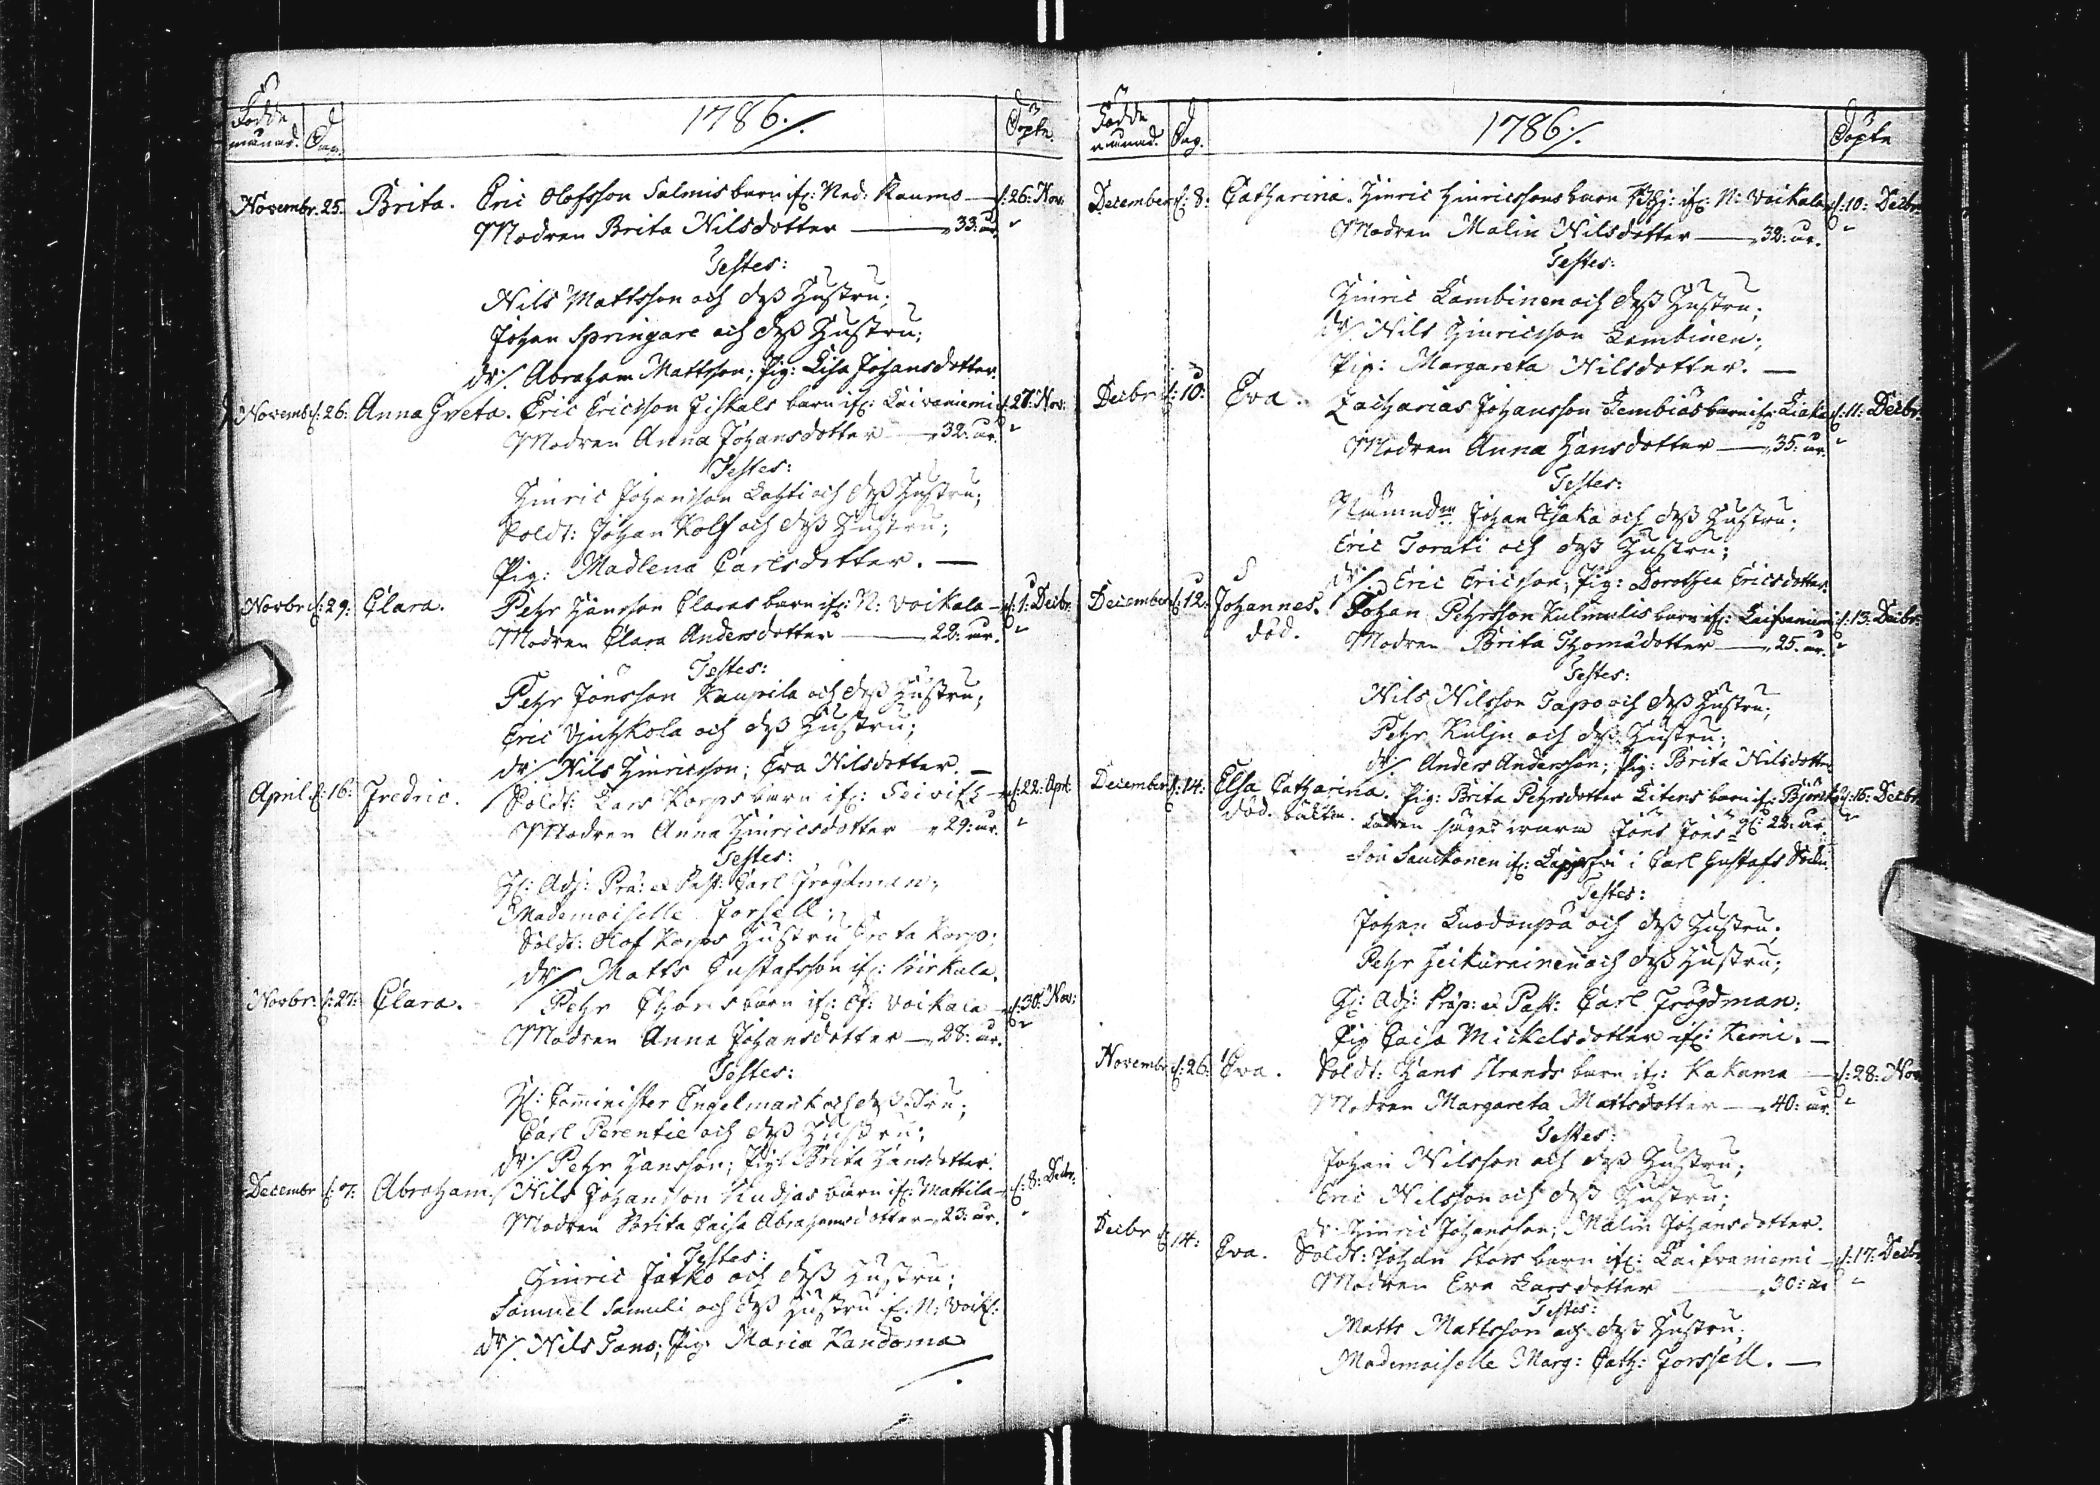 Födde månad. Dag. 1786./. Döpte.
Novembr. 25. Brita. Eric Olofsson Salmis barn if: Ned: Raumo — d: 26: Nov:
Modren Brita Nilsdotter — 33: år.
Testes:
Nils Mattsson och dess Hustru;
Johan Springare och dess Hustru;
dr/. Abraham Mattsson; Pig: Lisa Johansdotter.
Novemb d: 26: Anna Greta. Eric Ericsson barn if: Laivaniemi d: 27: Nov:
Modren Anna Johansdotter — 32: år.
Testes:
Hinric Johansson Lahti och dess Hustru;
Soldt: Johan Kolf och dess Hustru;
Pig: Madlena Carlsdotter. —
Novbr d: 29: Clara. Pehr Hansson Claras barn if: N: Voikala — d: 1: Decbr.
Modren Clara Andersdotter — 22: år.
Testes:
Pehr Jönsson Kauppila och dess Hustru;
Eric och dess Hustru;
dr/. Nils Hinricsson; Eva Nilsdotter. —
April d: 16: Fredric. Soldt: Lars Korps barn if: — d: 22: Apr:
Modren Anna Hinricsdotter — 29: år.
Testes:
H: Adj: Præ: et Past: Carl Frogdman;
Mademoiselle Forsell;
Soldt: Olof Korps Hustru Greta Korp;
dr/ Matts Gustafsson if: Kirkala.
Novbr: d: 27: Clara. Pehr Thors barn if: Öf: Voikala — d: 30: Nov:
Modren Anna Johansdotter — 28: år.
Testes:
H: Comminister Engelmark och dess Fru;
Carl Perentie och dess Hustru;
dr/ Pehr Hansson; Pig: Brita Hansdotter.
Decembr d: 7: Abraham. Nils Johansson barn if: Mattila — d: 8: Decbr.
Modren Brita Caisa Abrahamsdotter — 23: år.
Testes:
Hinric Jatko och dess Hustru;
Samuel Samuli och dess Hustru if: N: Voik:
dr/. Nils Tano; Pig: Maria Kandoma
Födde månad. Dag. 1786/. Döpte
December d: 8: Catharina. Hinric Hinricssons barn if: N: Voikala d: 10: Decbr
Modren Malin Nilsdotter — 32: år.
Testes:
Hinric Lambinen och dess Hustru;
dr/. Nils Hinricsson Lambinen;
Pig: Margareta Nilsdotter. —
Decbr d: 10: Eva. Zacharias Johansson Lembiäs barn if: Liaka d: 11: Decbr
Modren Anna Hansdotter — 35: år.
Testes:
Nämndm Johan och dess Hustru;
Eric Torati och dess Hustru;
dr/. Eric Ericsson; Pig: Dorothea Ericsdotter
December d: 12: Johannes. Johan Pehrsson barn if: Laivaniemi d: 13: Decbr:
död. Modren Brita Thomædotter — 25. år.
Testes:
Nils Nilsson Tapo och dess Hustru;
Pehr Kulju och dess Hustru;
dr/. Anders Andersson; Pig: Brita Nilsdotter
December d: 14: Elsa Catharina. Pig: Brita Pehrsdotter Litens barn if: d: 15: Decbr
död. Fadren säges wara Jöns Jöns= 22: år.
=son if: i Carl Gustafs
Testes:
Johan och dess Hustru;
Pehr Heikurainen och dess Hustru;
H: Adj: Præp: et Past: Carl Frogdman:
Pig Caisa Mickelsdotter if: Kemi. —
Novembr d: 26: Eva. Soldt: Hans Strands barn if: Kakama — d: 28: Nov
Modren Margareta Mattsdotter — 40: år.
Testes:
Johan Nilsson och dess Hustru;
Eric Nilsson och dess Hustru;
dr: Hinric Johansson; Malin Johansdotter.
Decbr d: 14: Eva. Soldt: Johan Stors barn if: Laitvaniemi — d: 17: Decbr
Modren Eva Larsdotter — 30: år
Testes:
Matts Mattsson och dess Hustru;
Mademoiselle Marg: Cath: Forssell. —